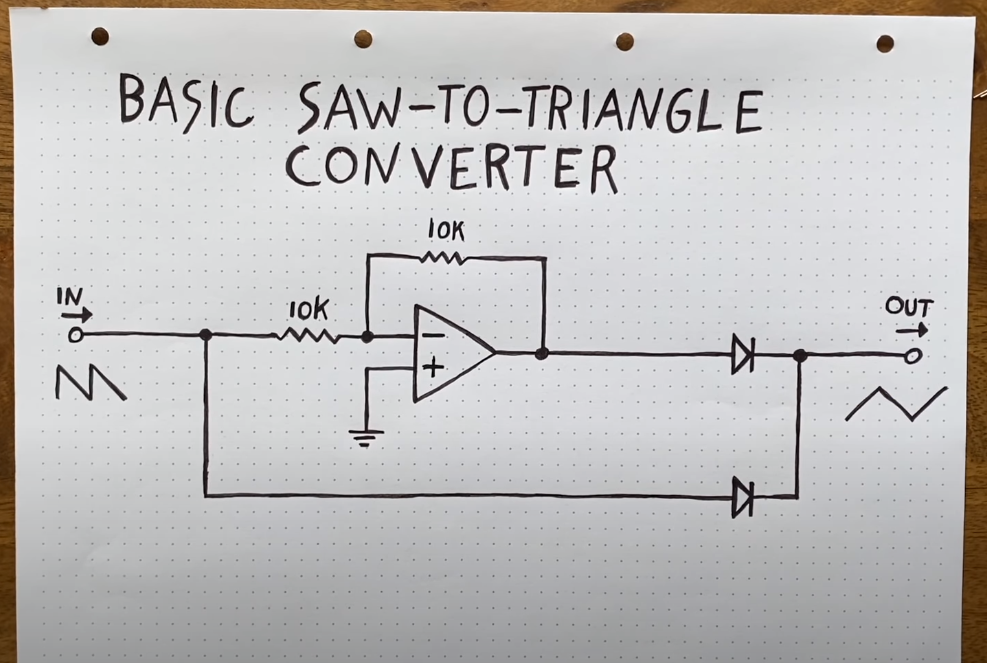 BASIC SAW-TO-TRIANGLE
CONVERTER
10K
IN
10K
OUT
−
+